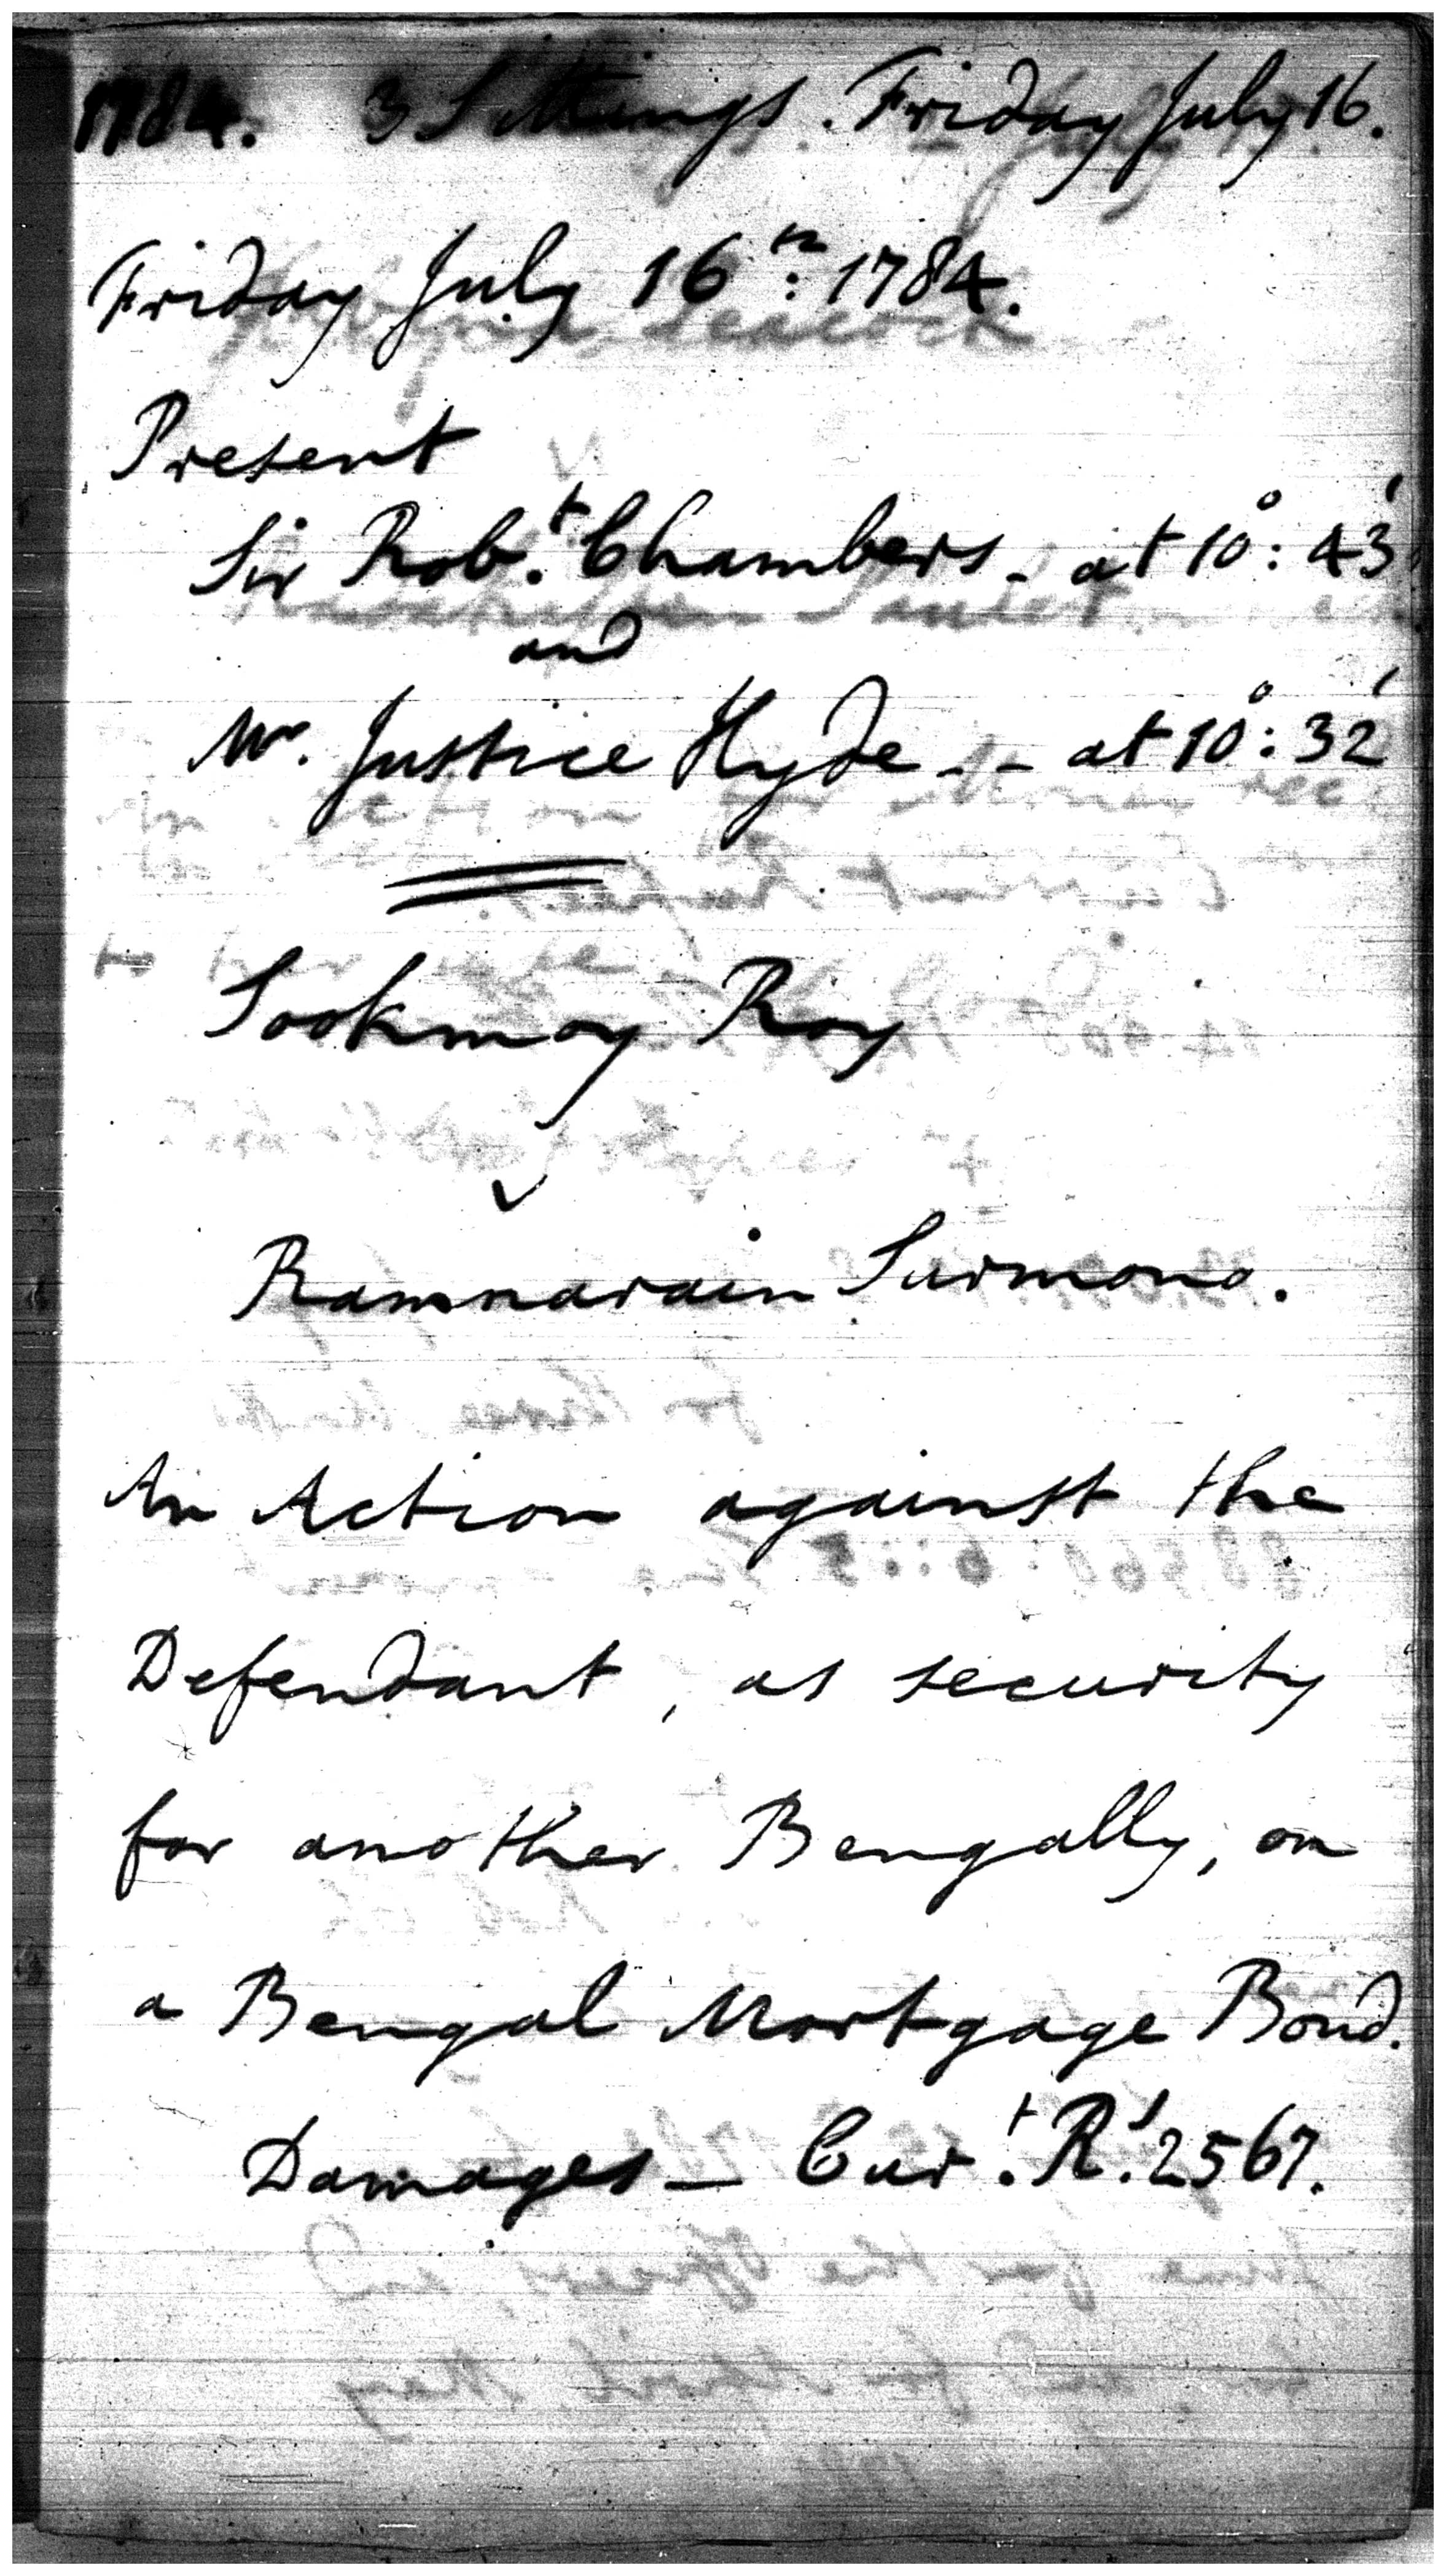 1784. 3 Sittings. Friday July 16.
Friday July 16th: 1784.
Present
Sir Rob.t Chambers - at 10°: 43'
and
Mr. Justice Hyde - - at 10°: 32'
Sookmoy Roy
v
Ramnarain Surmono.
An Action against the
Defendant, as security
for another Bengally, on
a Bengal Mortgage Bond.
Damages — Cur.t R.s 2567.